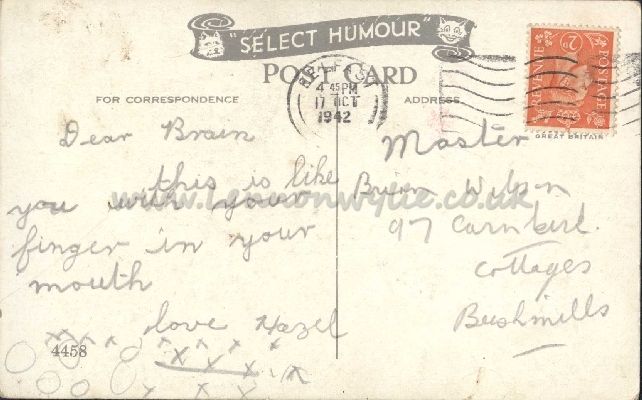 "SELECT HUMOUR"
POST CARD
FOR CORRESPONDENCE
ADDRESS
BELFAST
4 45 PM
17 OCT
1942
POSTAGE
REVENUE
2D
GREAT BRITAIN
Dear Brain
this is like
you with your
finger in your
mouth
love Hazel
x x x x x x x
x x x x x
x x x
4458
Master
Brian Wilson
97 Carnkirk
Cottages
Bushmills